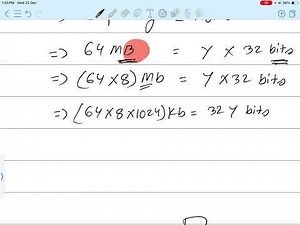 1:50 PM Wed 25 Dec
=> 64 MB = Y × 32 bits
=> (64×8) Mb = Y × 32 bits
=> (64×8×1024) Kb = 32 Y bits